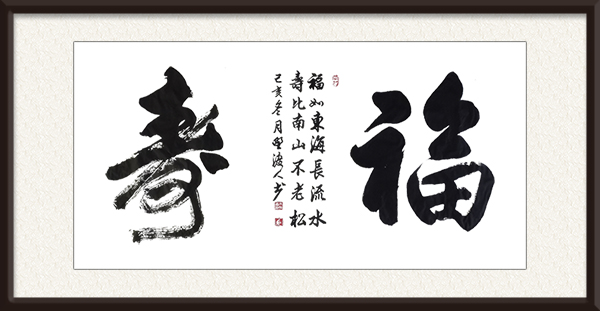 福
福如東海長流水
壽比南山不老松
己亥冬月墅渡人书
寿